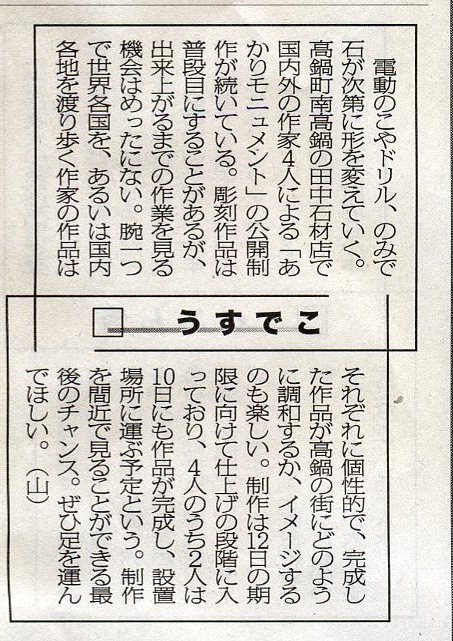 電動のこやドリル、のみで
石が次第に形を変えていく。
高鍋町南高鍋の田中石材店で
国内外の作家4人による「あ
かりモニュメント」の公開制
作が続いている。彫刻作品は
普段目にすることがあるが、
出来上がるまでの作業を見る
機会はめったにない。腕一つ
で世界各国を、あるいは国内
各地を渡り歩く作家の作品は
こですう
それぞれに個性的で、完成し
た作品が高鍋の街にどのよう
に調和するか、イメージする
のも楽しい。制作は12日の期
限に向けて仕上げの段階に入
っており、4人のうち2人は
10日にも作品が完成し、設置
場所に運ぶ予定という。制作
を間近で見ることができる最
後のチャンス。ぜひ足を運ん
でほしい。（山）